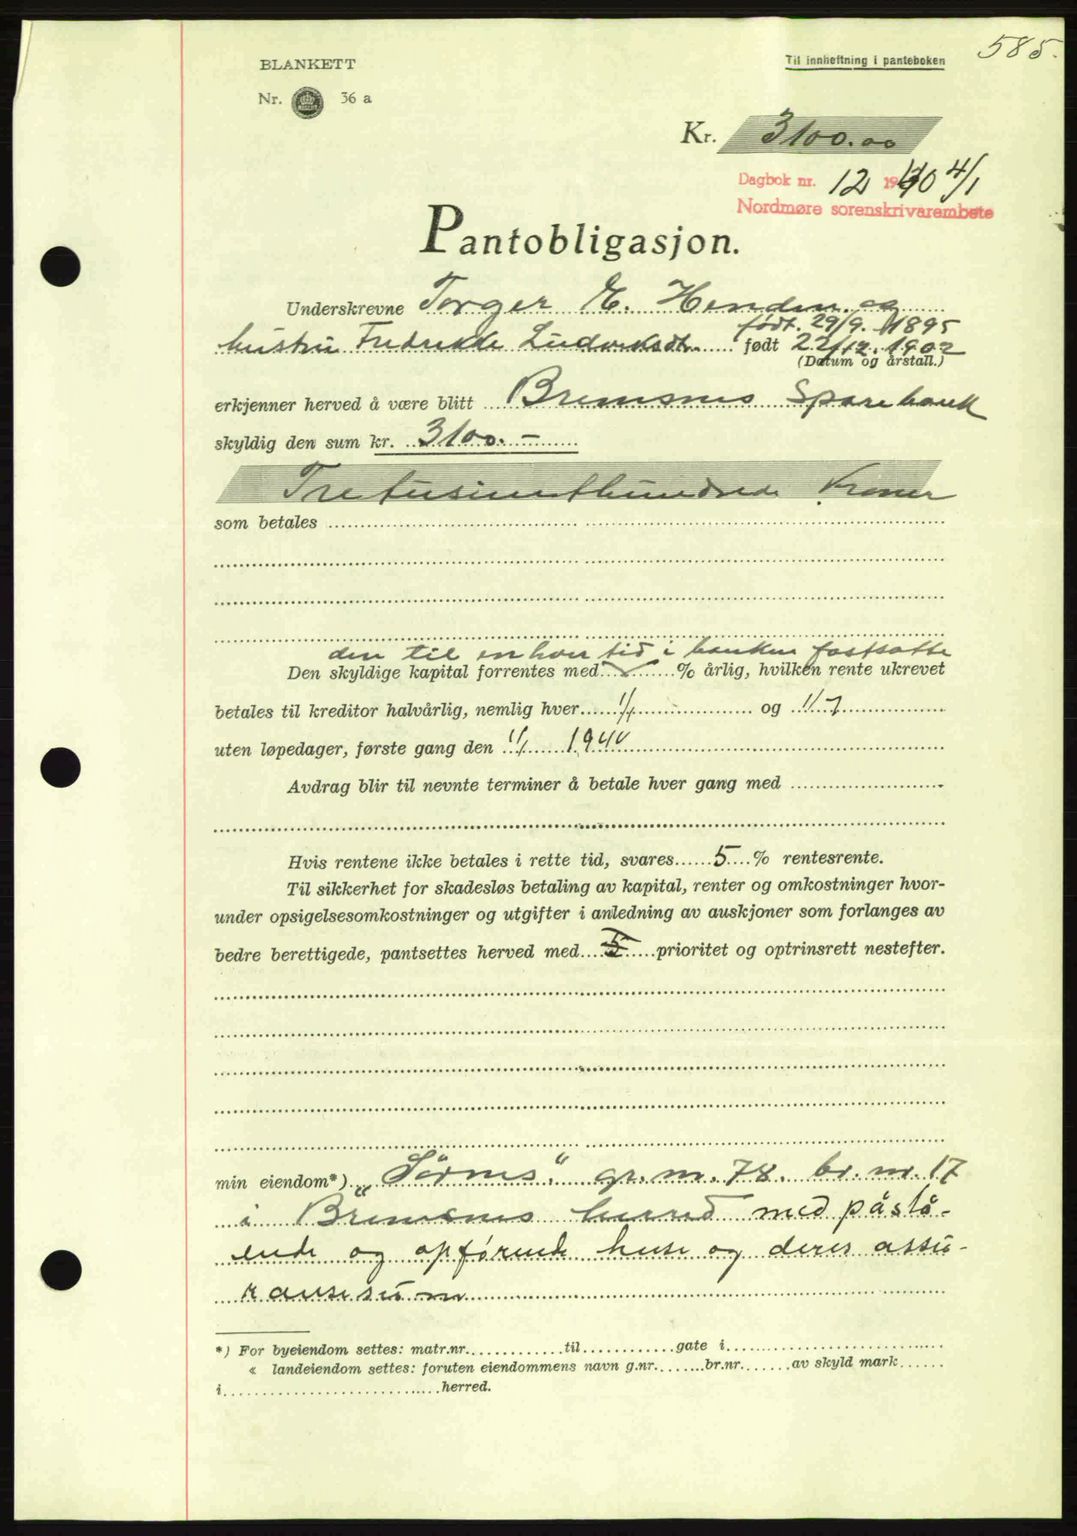 585.
BLANKETT
Til innheftning i panteboken
Nr. 36 a
Kr. 3100.00
Dagbok nr. 12 1940 4/1
Nordmøre sorenskrivarembete
Pantobligasjon.
Underskrevne Torger E. Henden og
født. 29/9. 1895
hustru Fredrikke Ludviksdtr. født 22/12. 1902
(Datum og årstall.)
erkjenner herved å være blitt Bremsnes Sparebank
skyldig den sum kr. 3100.-
Tretusinethundrede Kroner
som betales
den til enhver tid i banken fastsatte
Den skyldige kapital forrentes med % årlig, hvilken rente ukrevet
betales til kreditor halvårlig, nemlig hver 1/1 og 1/7
uten løpedager, første gang den 1/1 1940
Avdrag blir til nevnte terminer å betale hver gang med
Hvis rentene ikke betales i rette tid, svares 5 % rentesrente.
Til sikkerhet for skadesløs betaling av kapital, renter og omkostninger hvor-
under opsigelsesomkostninger og utgifter i anledning av auskjoner som forlanges av
bedre berettigede, pantsettes herved med prioritet og optrinsrett nestefter.
min eiendom*) "Sörnes" gr. nr. 78. br. nr. 17
i Bremsnes herred med påstå-
ende og opførende huse og deres assu-
ransesum
*) For byeiendom settes: matr.nr. til gate i
« landeiendom settes: foruten eiendommens navn g.nr. br.nr. av skyld mark
i herred.